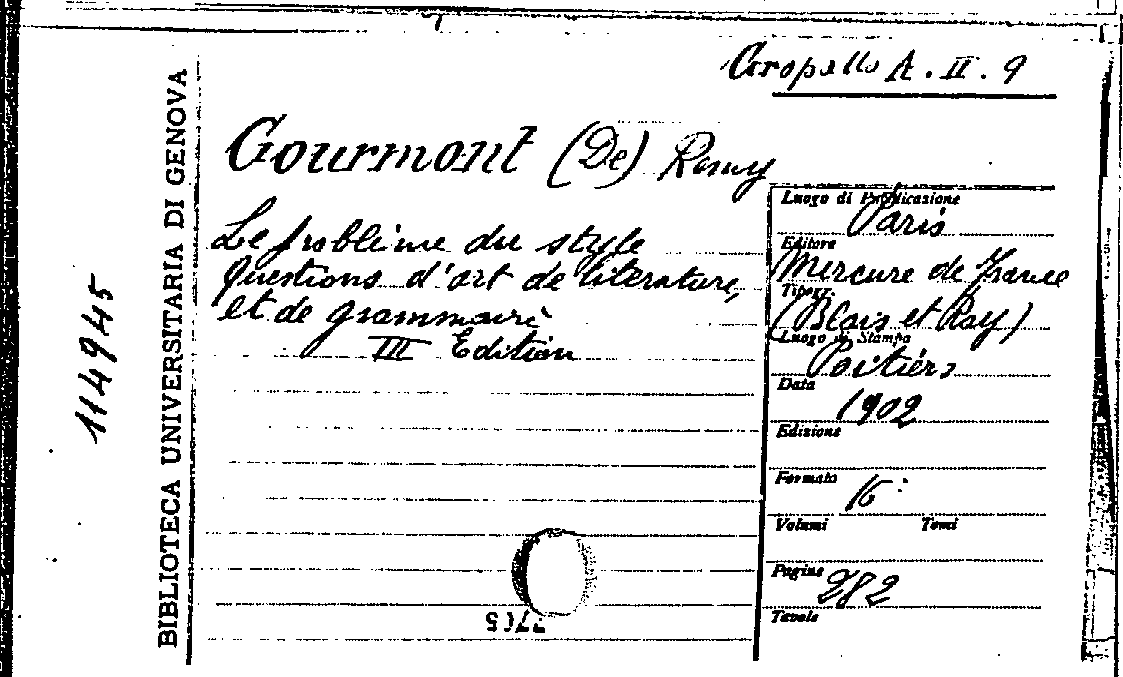 Coropallo A. II. 9
Gourmont (De) Remy
Le problème du style
Questions d'art de literature,
et de grammaire
III Edition
Luogo di Pubblicazione
Paris
Editore
Mercure de France
Tipogr.
(Blais et Roy)
Luogo di Stampa
Poitiérs
Data
1902
Edizione
Formato
16°
Volumi Tomi
Pagine
282
Tavole
BIBLIOTECA UNIVERSITARIA DI GENOVA
114945